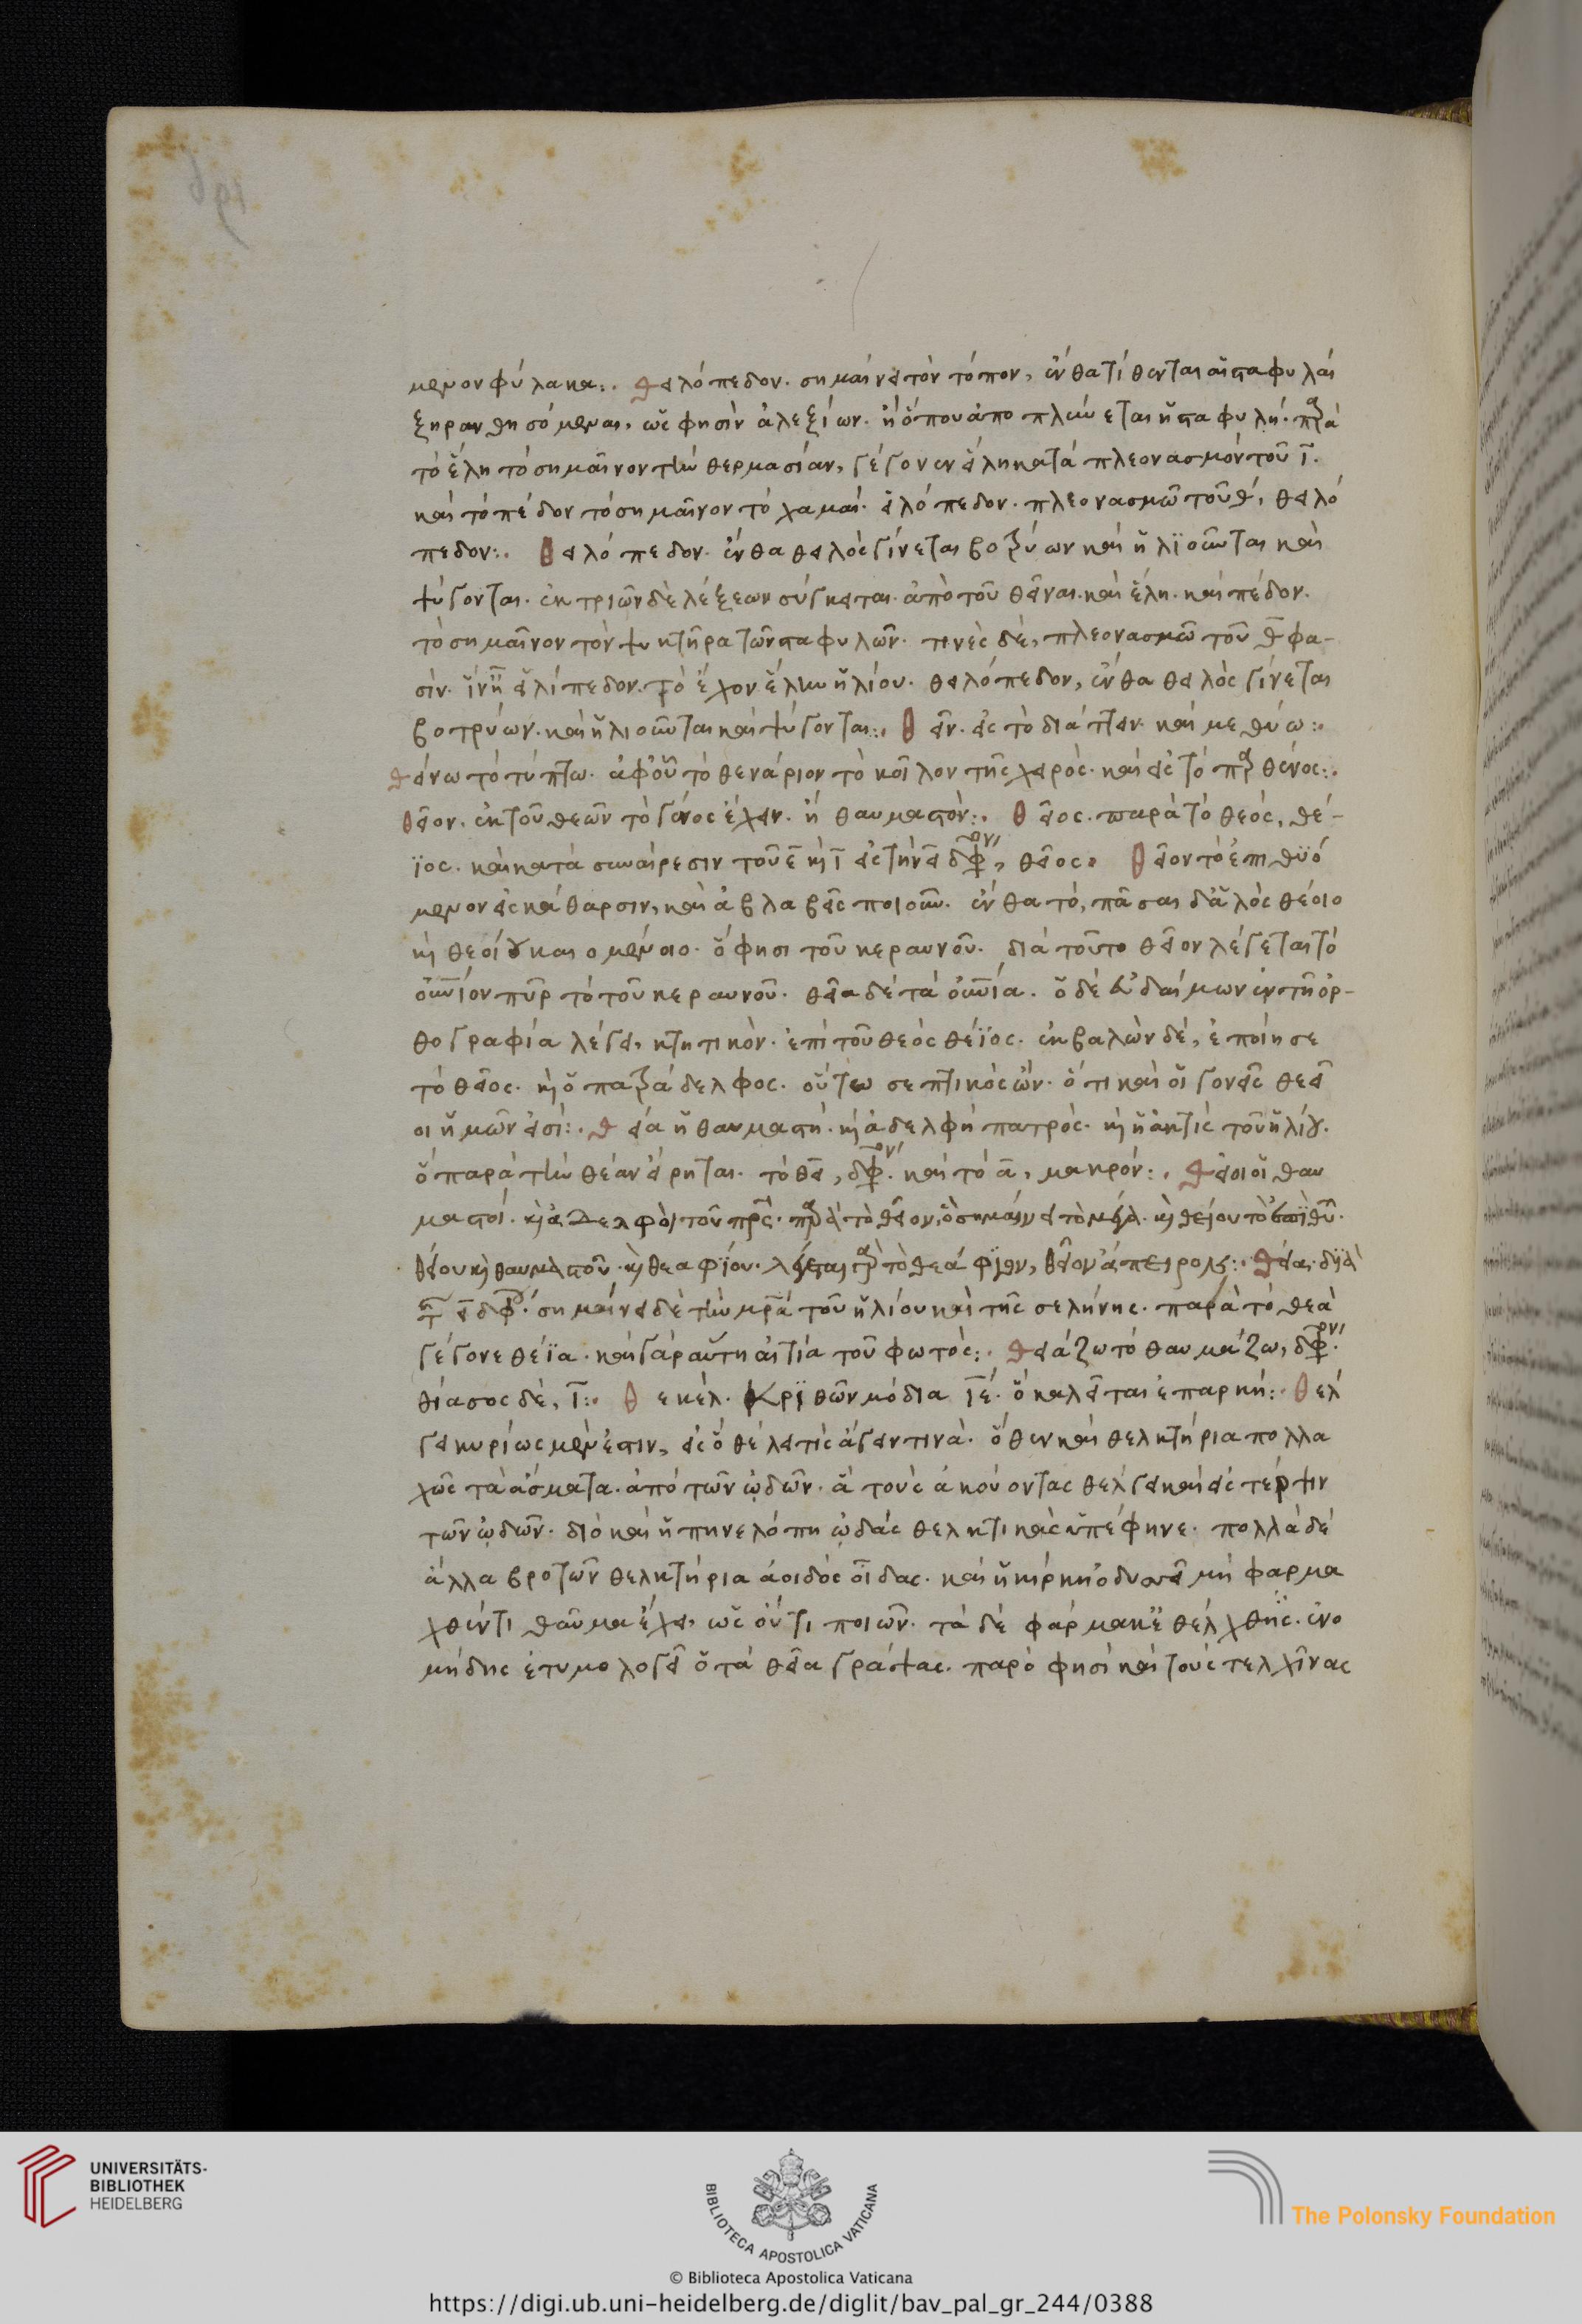 μενον φύλακα:. θειλόπεδον. σημαίνει τὸν τόπον, ἔνθα τίθενται αἱ σταφυλαὶ
ξηρανθησόμεναι, ὥς φησὶν ἀλεξίων. ἢ ὅπου ἀποπλύνεται ἡ σταφυλή. παρὰ
τὸ ἕλη τὸ σημαῖνον τὴν θερμασίαν, γέγονεν εἵλη κατὰ πλεονασμὸν τοῦ ῑ.
καὶ τὸ πέδον τὸ σημαῖνον τὸ χαμαί. εἱλόπεδον. πλεονασμῶ τοῦ θ, θειλό
πεδον:. θειλόπεδον. ἔνθα θειλὸς γίνεται βοτρύων καὶ ἡλϊοῦνται καὶ
ψύγονται. ἐκ τριῶν δὲ λέξεων σύγκειται. ἀπὸ τοῦ θεῖναι. καὶ ἕλη. καὶ πέδον.
τὸ σημαῖνον τὸν ψυκτῆρα τῶν σταφυλῶν. τινὲς δὲ, πλεονασμῶ τοῦ θ φα-
σίν. ἵν ᾖ εἱλόπεδον. τὸ ἔχον ἕλην ἡλίου. θειλόπεδον, ἔνθα θειλὸς γίνεται
βοτρύων. καὶ ἡλιοῦνται καὶ ψύγονται:. θεῖν. εἰς τὸ διάττειν. καὶ μεθύω:.
θείνω τὸ τύπτω. ἀφ' οὗ τὸ θενάριον τὸ κοῖλον τῆς χειρός. καὶ εἰς τὸ παρθένος:.
θεῖον. ἐκ τοῦ θεῶν τὸ γένος ἔχειν. ἢ θαυμαστὸν:. θεῖος. παρὰ τὸ θεὸς, θέ-
ϊος. καὶ κατὰ συναίρεσιν τοῦ ε̄ καὶ ῑ εἰς τὴν ει δίφθογγον, θεῖος. θεῖον τὸ ἐπιθϋό
μενον εἰς κάθαρσιν, καὶ ἀβλαβεῖς ποιοῦν. ἔνθα τό, πᾶσαι δ' ἁλὸς θέοιο
καὶ θεοίου καιομένοιο. ὅ φησι τοῦ κεραυνοῦ. διὰ τοῦτο θεῖον λέγεται τὸ
οὐνίον πῦρ τὸ τοῦ κεραυνοῦ. θεῖα δὲ τὰ οὐνία. ὁ δὲ εὐδαίμων ἐν τῆ ὀρ-
θογραφία λέγει, κτητικόν. ἐπὶ τοῦ θεὸς θέϊος. ἐκβαλὼν δέ, ἐποίησε
τὸ θεῖος. καὶ ὁ πατράδελφος. οὕτω σεπτικὸς ὤν. ὅτι καὶ οἱ γονεῖς θεῖ
οι ἡμῶν εἰσί:. θεία ἡ θαυμαστή. καὶ ἀδελφὴ πατρός. καὶ ἡ ἀκτὶς τοῦ ἡλίου.
ὃ παρὰ τὴν θέαν εἴρηται. τὸ θει, δίφθογγον. καὶ τὸ ᾱ, μακρόν:. θεῖοι οἱ θαυ
μαστοί. καὶ ἀδελφοὶ τοῦ πατρός. παρὰ τὸ θεῖον, ὃ σημαίνει τὸ μέγα.
θείου καὶ θαυμαστοῦ. καὶ θεαφΐου. λέγεται παρὰ τὸ θεάφϊον, θεῖον ἄπειρον:. θεία. διὰ
τῆς ει διφθόγγου. σημαίνει δὲ τὴν μητέρα τοῦ ἡλίου καὶ τῆς σελήνης. παρὰ τὸ θεὰ
γέγονε θέϊα. καὶ γὰρ αὕτη αἰτία τοῦ φωτός:. θειάζω τὸ θαυμάζω, δίφθογγον.
θίασος δέ, ῑ:. θεκέλ. κρϊθῶν μόδια ῑέ. ὃ καλεῖται ἐπαρκή:. θέλ
γει κυρίως μέν ἐστιν, εἰς ὃ θέλει τὶς ἄγειν τινά. ὅθεν καὶ θελκτήρια πολλα
χῶς τὰ ἄσματα. ἀπὸ τῶν ᾠδῶν. ἃ τοὺς ἀκούοντας θέλγει καὶ εἰς τέρψιν
τῶν ᾠδῶν. διὸ καὶ ἡ πηνελόπη ᾠδὰς θελκτικὰς ὑπέφηνε. πολλὰ δὲ
ἄλλα βροτῶν θελκτήρια ἀοιδὸς οἶδας. καὶ ἡ κίρκη ὀδυσσεῖ μὴ φαρμα
χθέντι θαῦμα ἔχει, ὡς οὔτι ποιῶν. τὰ δὲ φάρμακ' ἐθέλχθης. ἐνο
μήδης ἐτυμολογεῖ ὁ τὰ θεῖα γράψας. παρό φησὶ καὶ τοὺς τελχῖνας
UNIVERSITÄTS-
BIBLIOTHEK
HEIDELBERG
BIBLIOTECA APOSTOLICA VATICANA
The Polonsky Foundation
© Biblioteca Apostolica Vaticana
https://digi.ub.uni-heidelberg.de/diglit/bav_pal_gr_244/0388